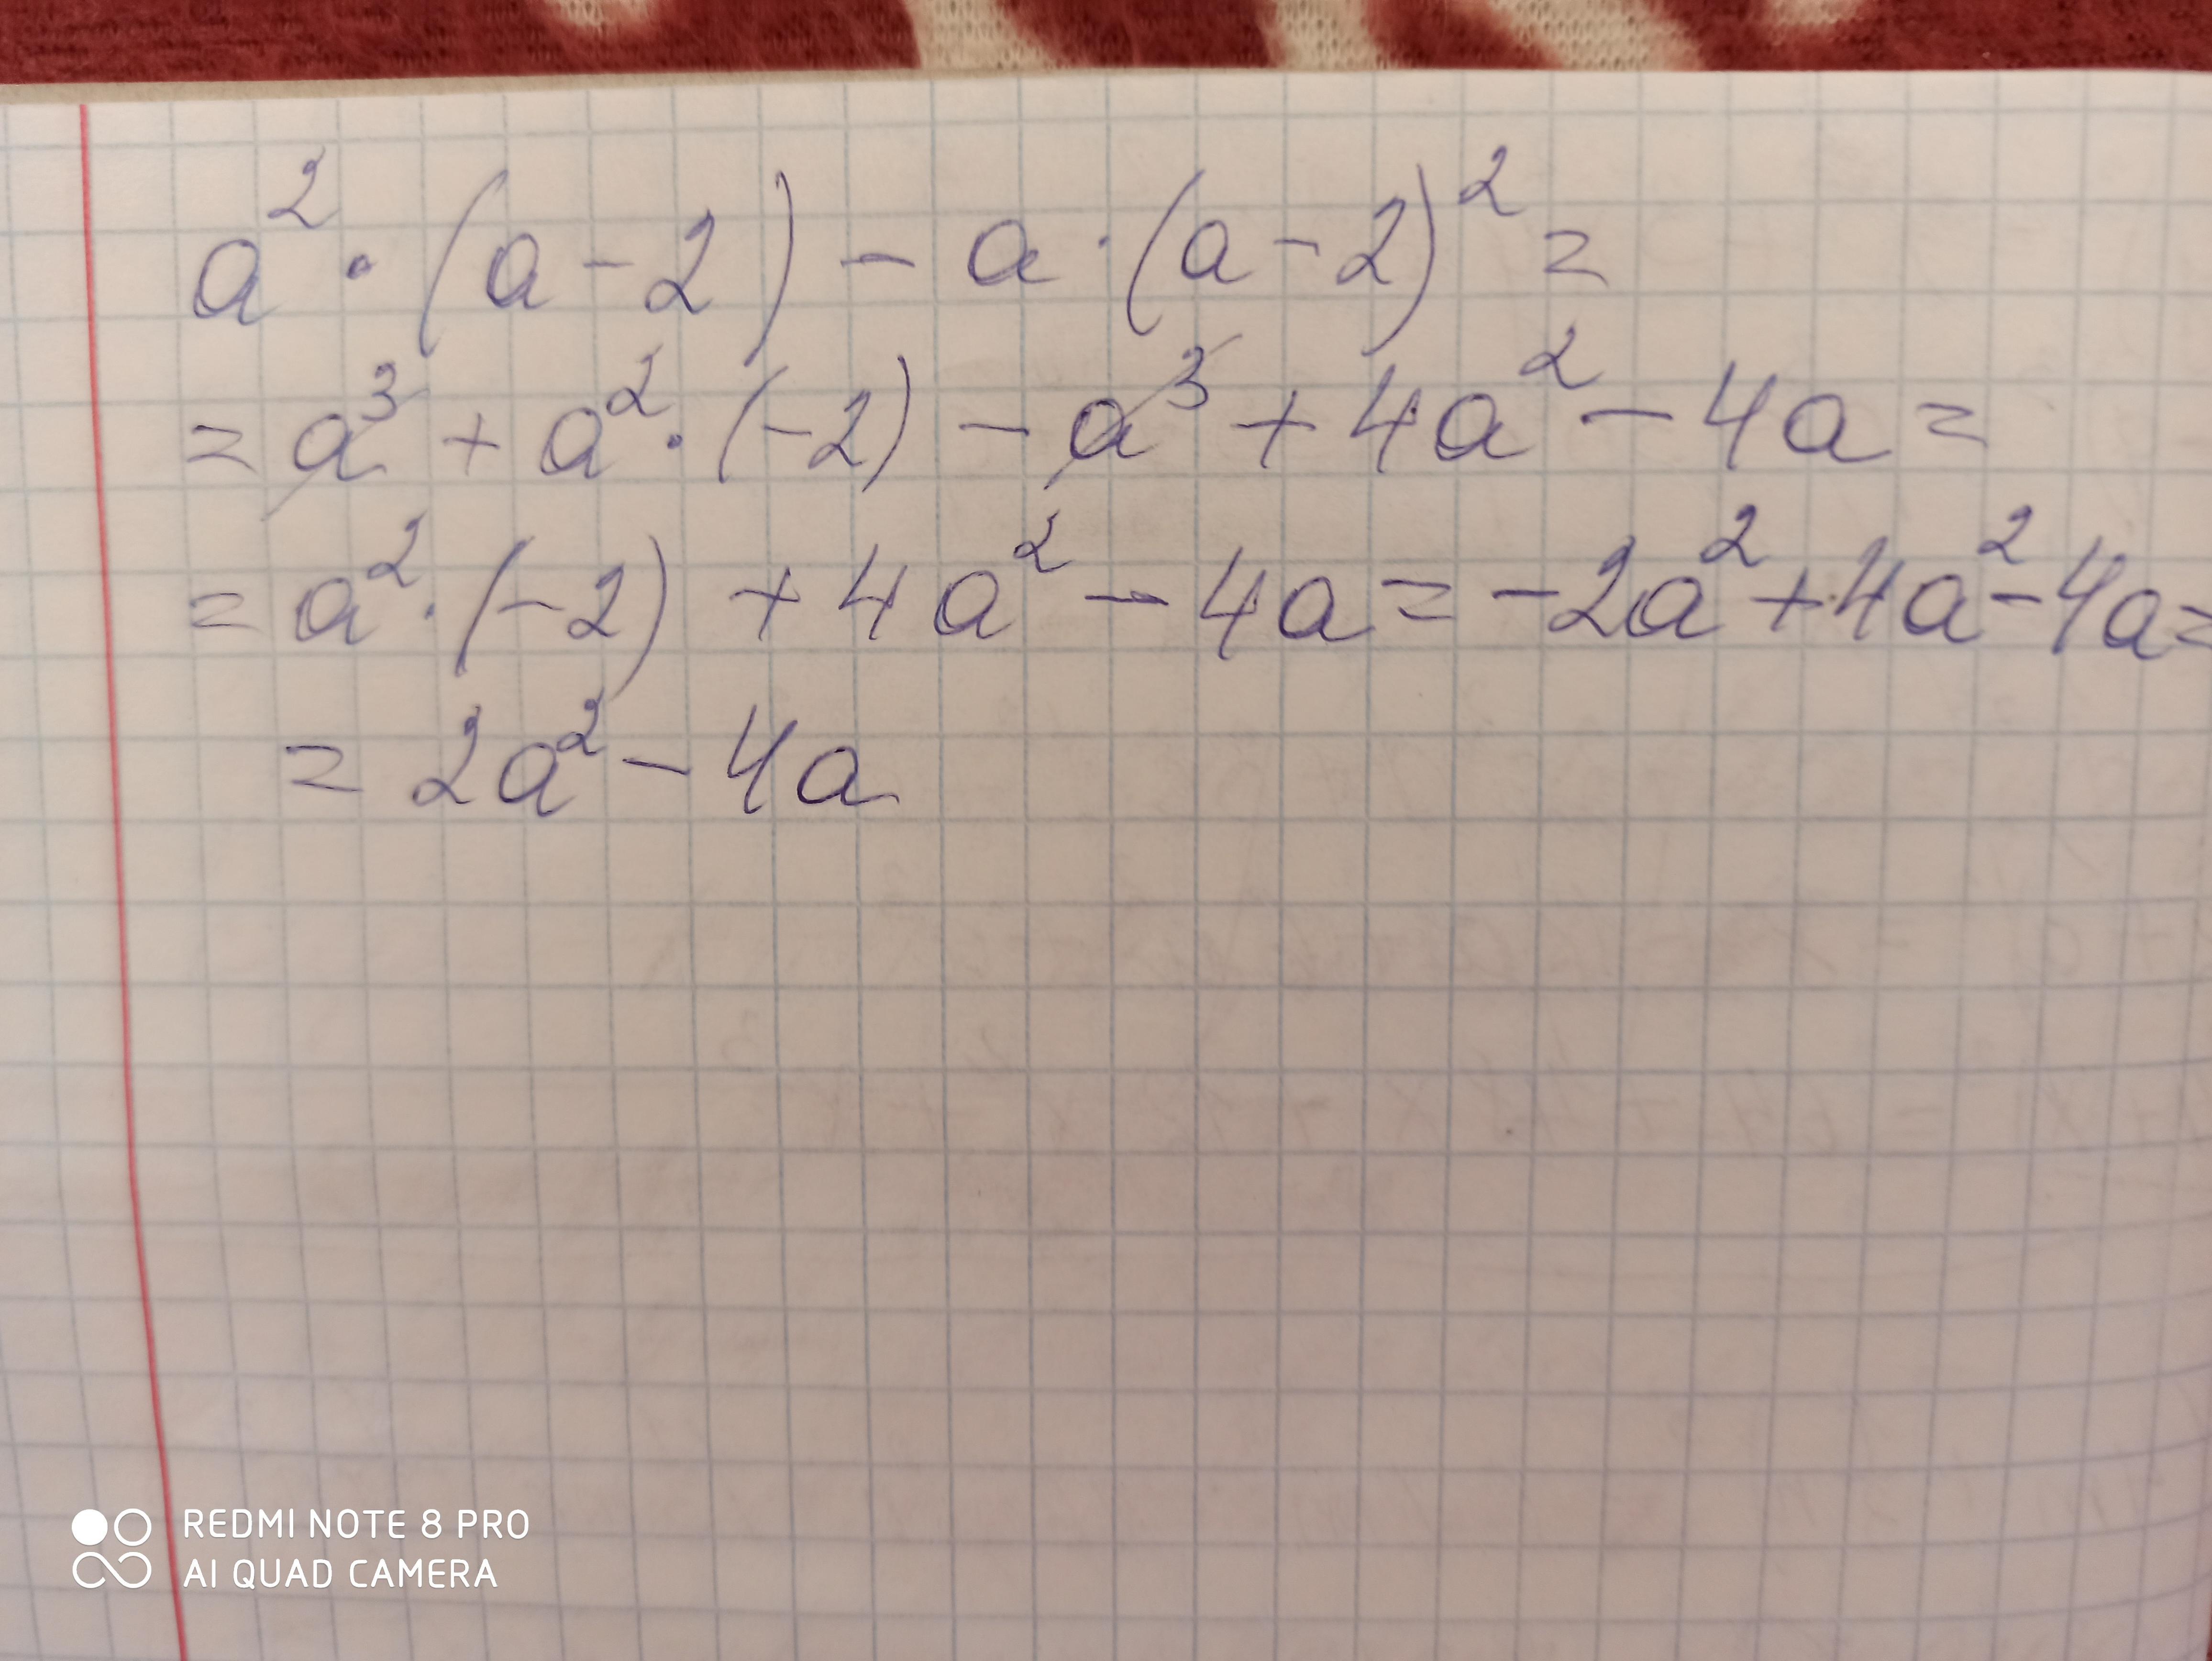 a² · (a - 2) - a · (a - 2)² =
= a³ + a² · (-2) - a³ + 4a² - 4a =
= a² · (-2) + 4a² - 4a = -2a² + 4a² - 4a =
= 2a² - 4a
REDMI NOTE 8 PRO
AI QUAD CAMERA